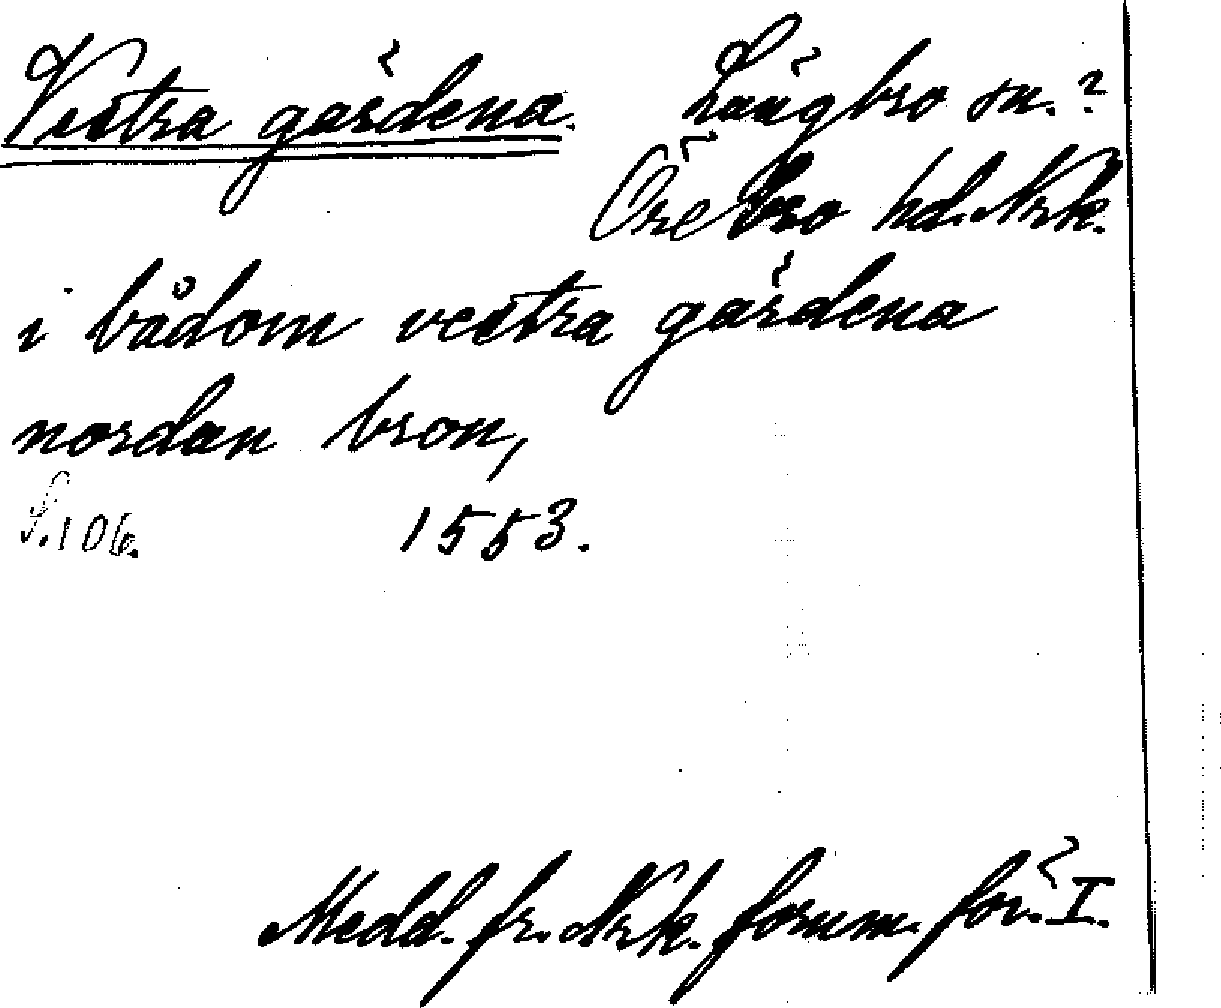 Vestra gärdena. Längbro sn.?
Örebro hd. Nrk.
i bådom vestra gärdena
nordan bron,
S. 106. 1553.
Medd. fr. Nrk. fornm. för. I.